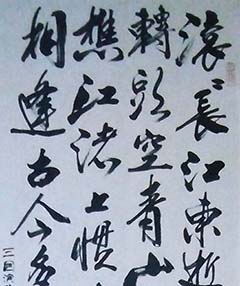 滚〻長江東逝
轉頭空青山
樵江渚上慣
相逢古今多
三国演